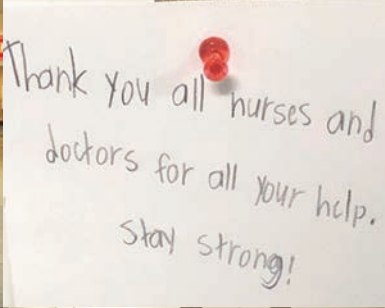 Thank you all nurses and
doctors for all your help.
Stay strong!